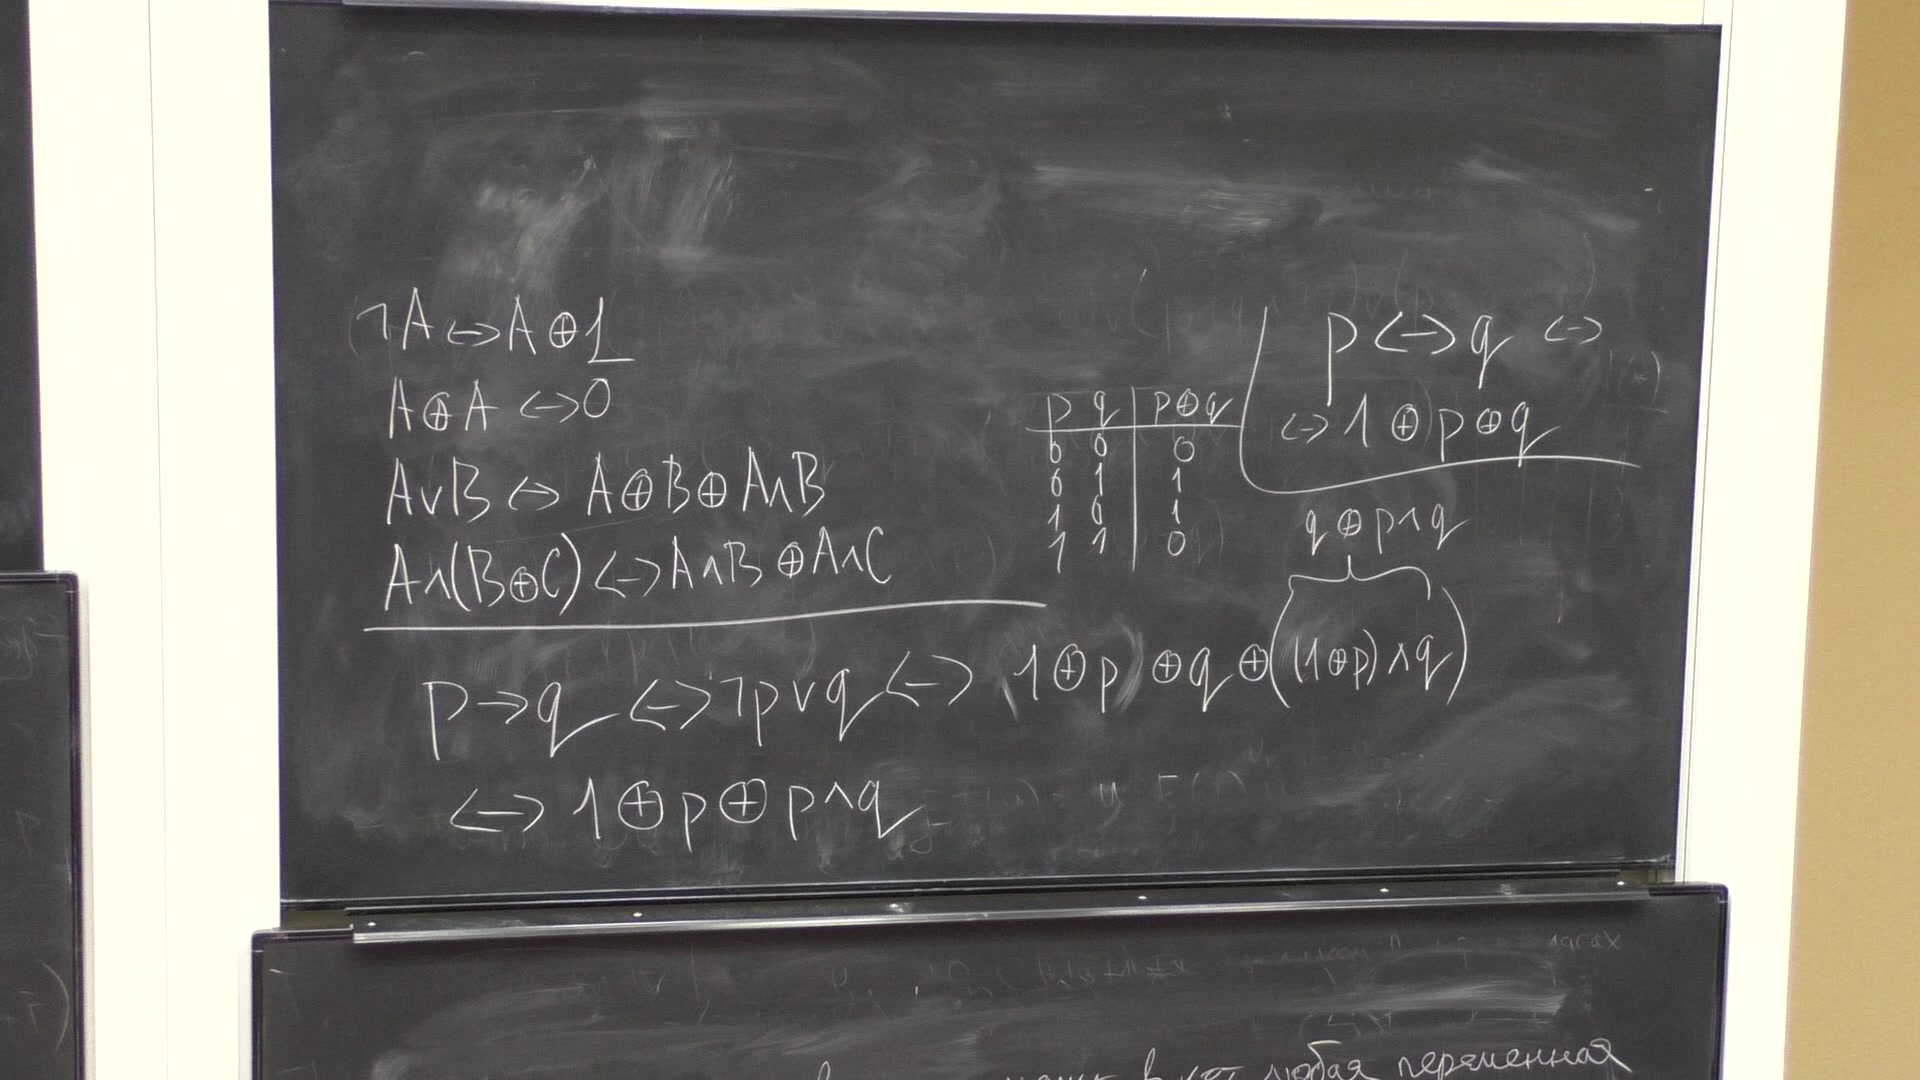 ¬A ↔ A ⊕ 1
A ⊕ A ↔ 0
A ∨ B ↔ A ⊕ B ⊕ A ∧ B
A ∧ (B ⊕ C) ↔ A ∧ B ⊕ A ∧ C
p q | p ⊕ q
0 0 | 0
0 1 | 1
1 0 | 1
1 1 | 0
p ↔ q ↔
↔ 1 ⊕ p ⊕ q
q ⊕ p ∧ q
p → q ↔ ¬p ∨ q ↔ (1 ⊕ p) ⊕ q ⊕ ((1 ⊕ p) ∧ q)
↔ 1 ⊕ p ⊕ p ∧ q
любая переменная